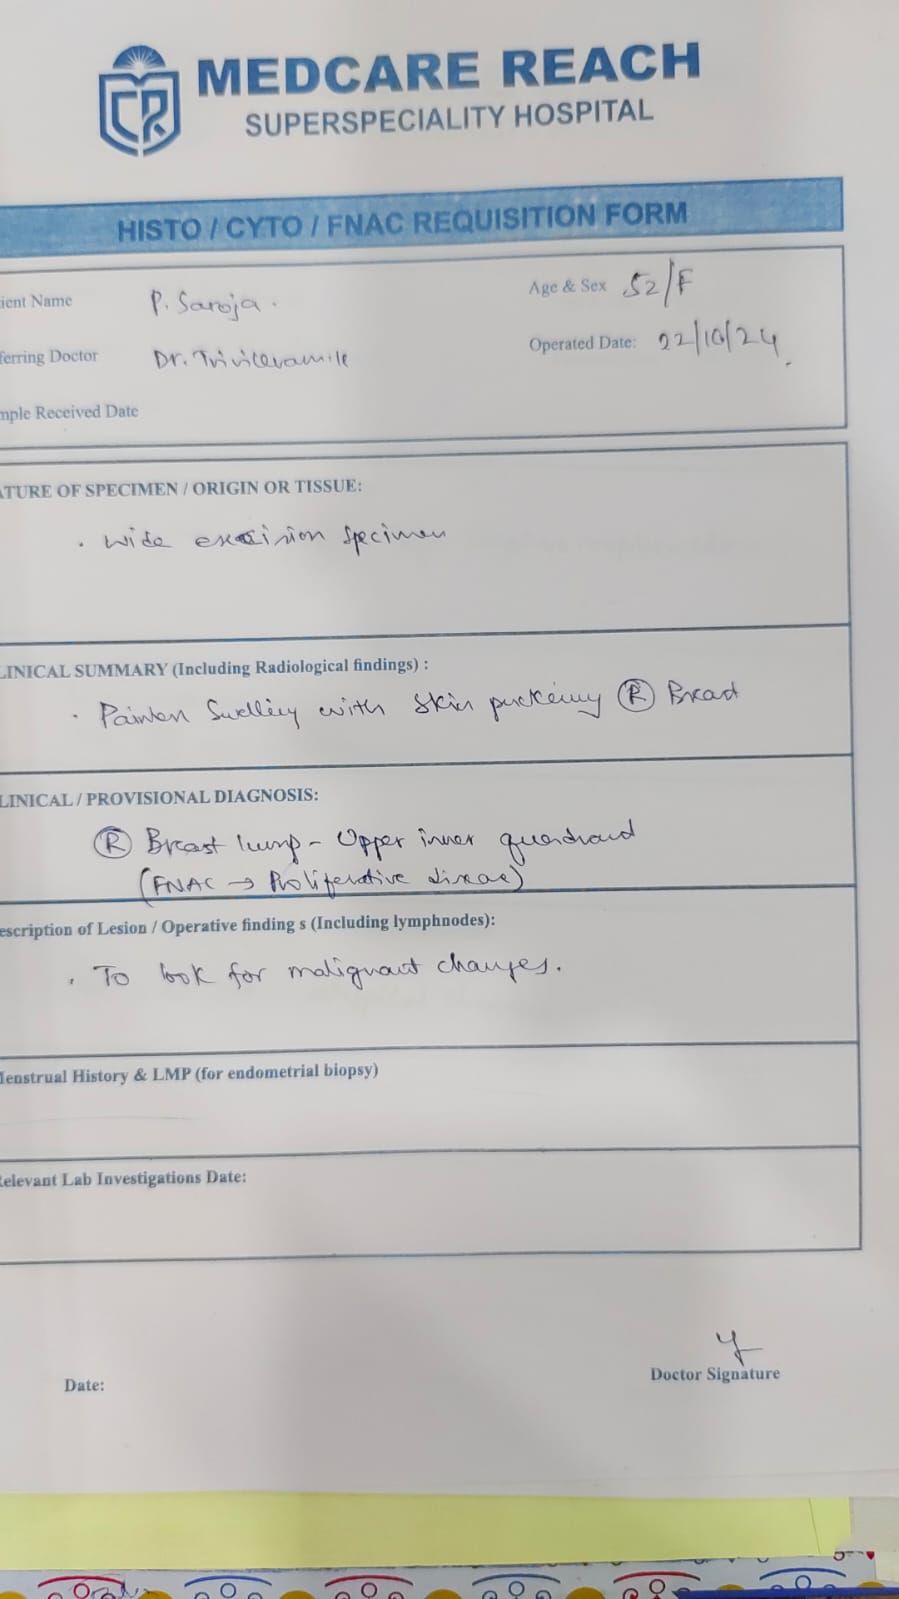 MEDCARE REACH
SUPERSPECIALITY HOSPITAL
HISTO / CYTO / FNAC REQUISITION FORM
ient Name P. Saroja. Age & Sex 52/F
ferring Doctor Dr. Operated Date: 22/10/24
mple Received Date
ATURE OF SPECIMEN / ORIGIN OR TISSUE:
. wide excision specimen
LINICAL SUMMARY (Including Radiological findings) :
. Swelling with skin puckering (R) Breast
LINICAL / PROVISIONAL DIAGNOSIS:
(R) Breast lump - Upper inner
(FNAC → Proliferative disease)
escription of Lesion / Operative finding s (Including lymphnodes):
. To look for malignant changes.
Menstrual History & LMP (for endometrial biopsy)
Relevant Lab Investigations Date:
Doctor Signature
Date: